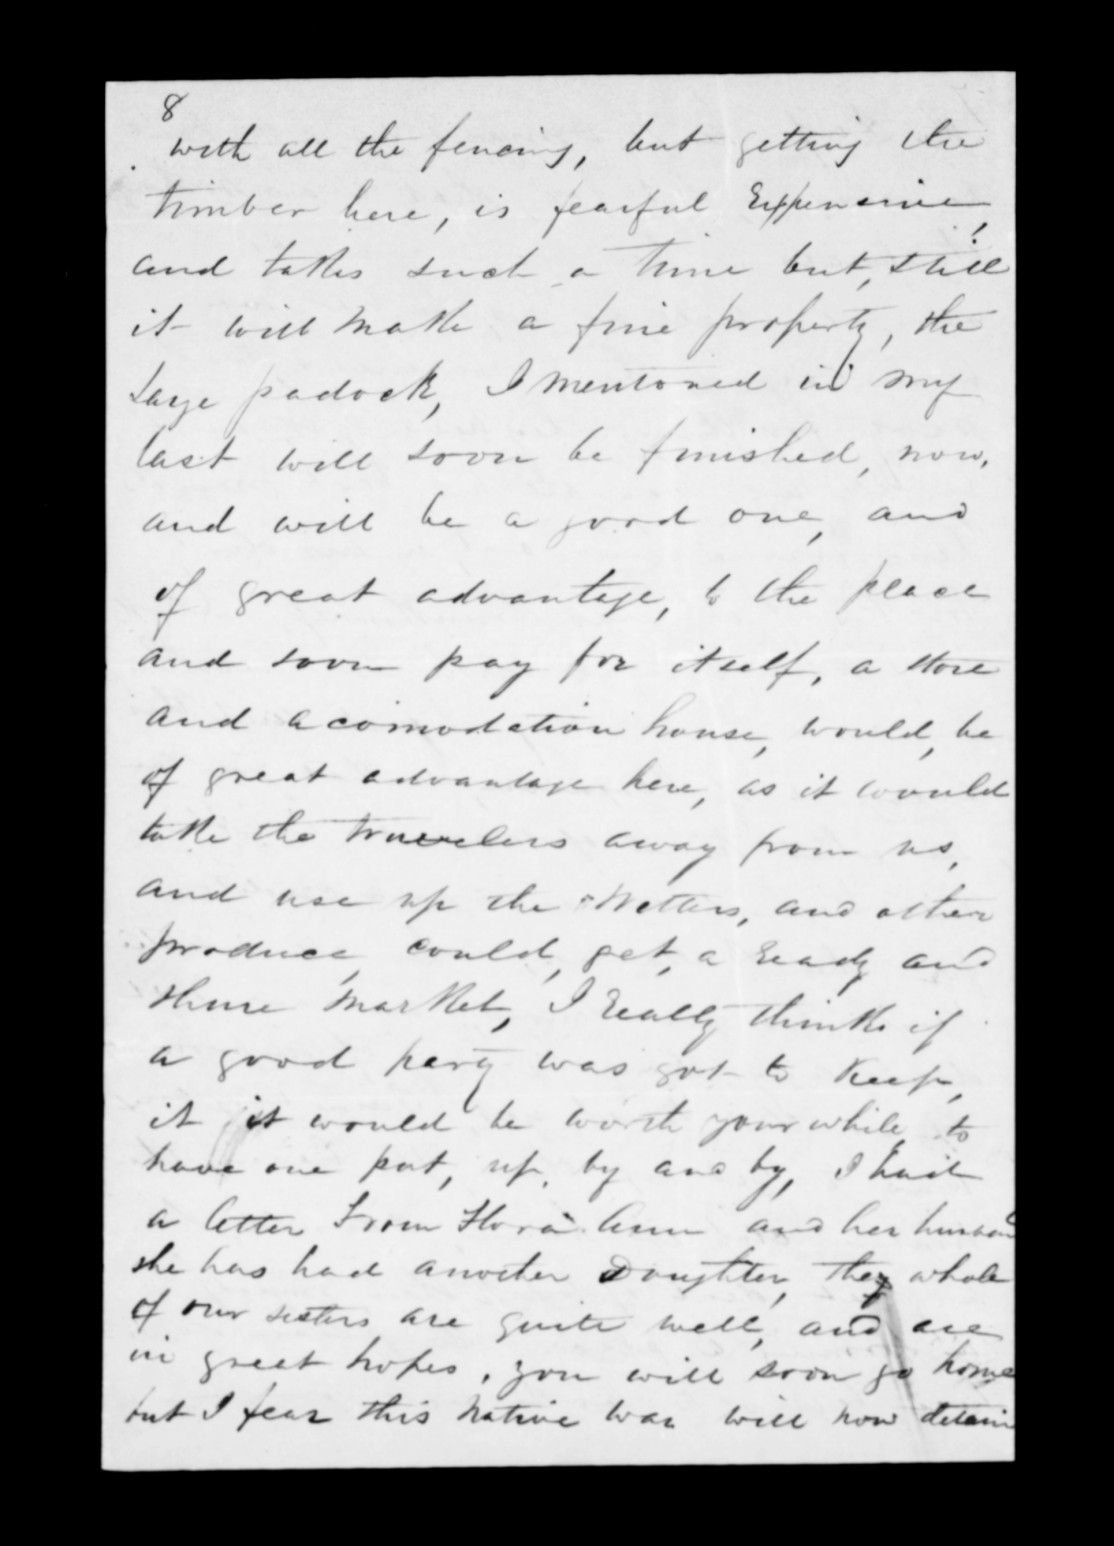 8
with all the fencing, but getting the
timber here, is fearful Expensive,
and takes such a time but, still
it will make a fine property, the
Large padock, I mentoned in my
last will soon be finished, now,
and will be a good one, and
of great advantage, to the place
and soon pay for itself, a store
and acomodation house, would, be
of great advantage here, as it would
take the travelers away from us,
and use up the Wethers, and other
produce, could, get, a ready and
shure market, I really think if
a good party was got to keep,
it it would be worth your while, to
have one put, up, by and by, I had
a letter From Flora Ann and her husband
she has had another Daughter, they whole
of our sisters are quite well, and are
in great hopes, you will soon go home
but I fear this native war will now detain